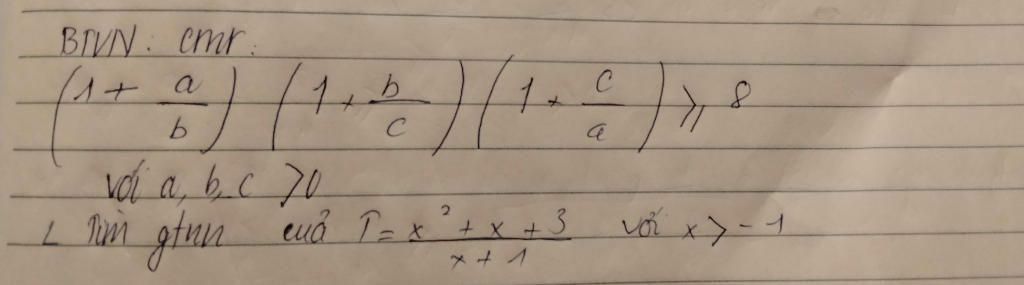 BTVN: cmr:
(1 + a/b) (1 + b/c) (1 + c/a) ≥ 8
với a, b, c >0
2 Tìm gtnn cuả T = x² + x + 3 / x + 1 với x > -1